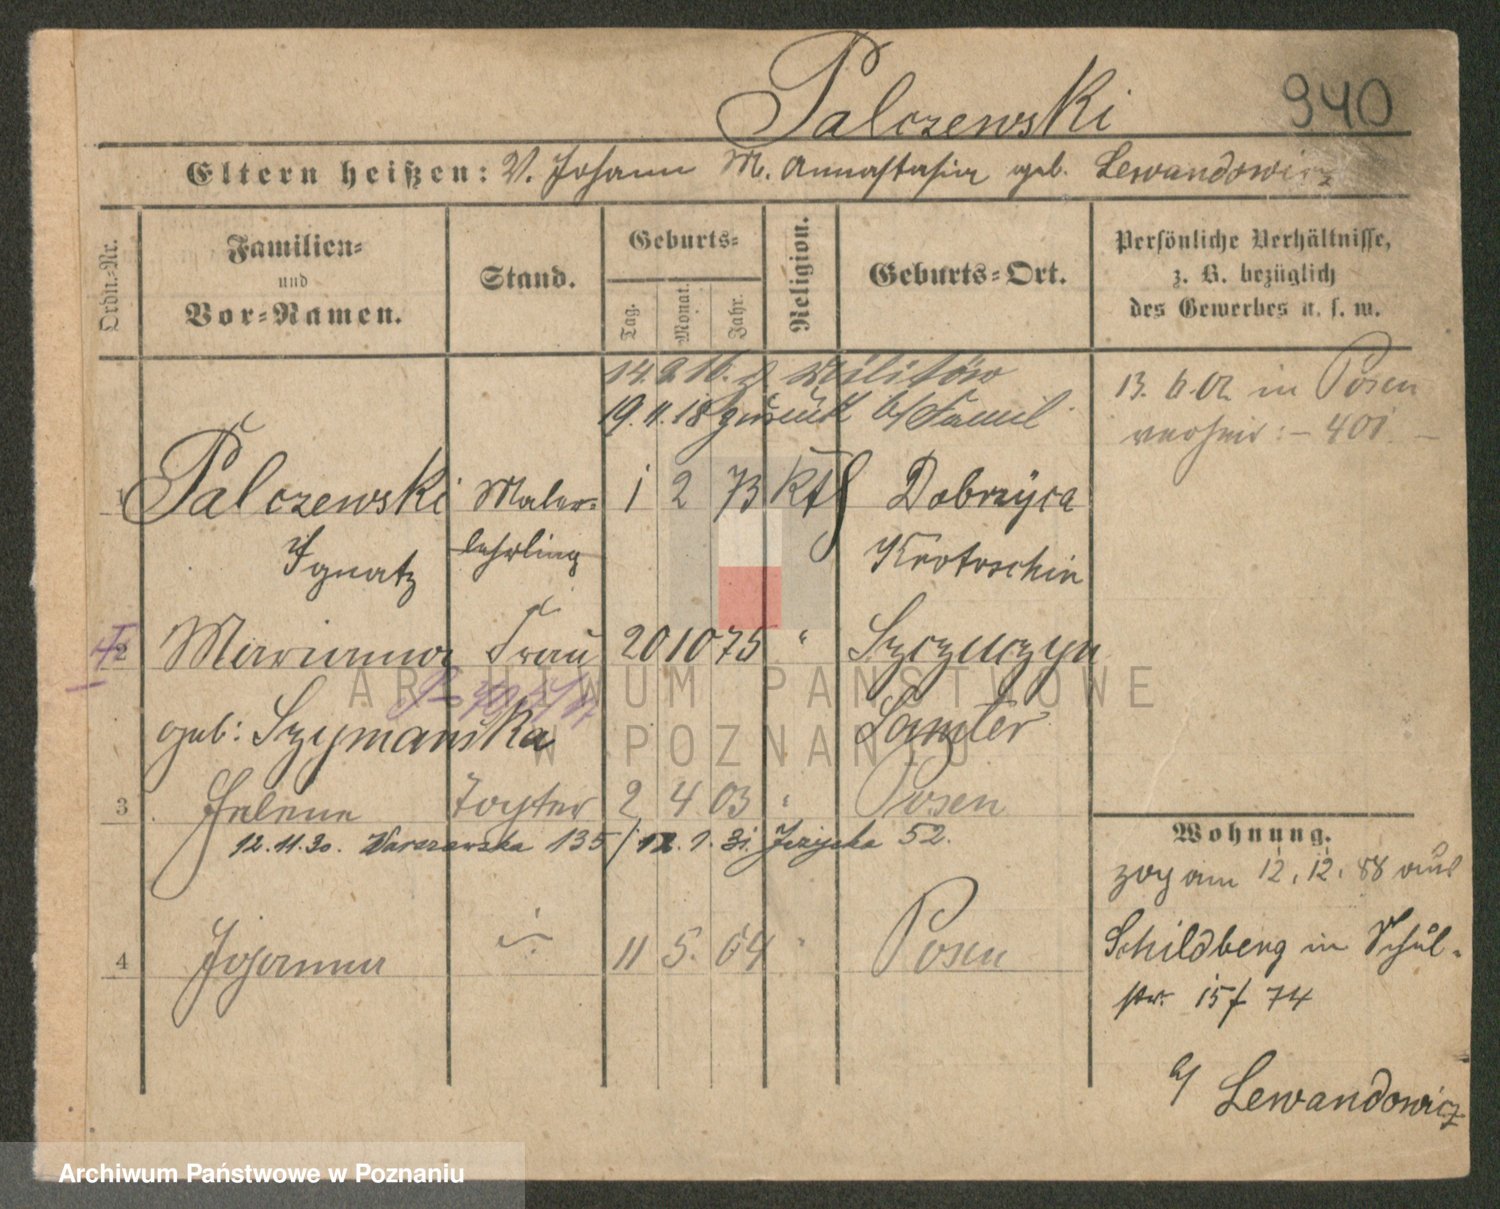 Palczewski
940
Eltern heißen: V. Johann M. Annastasia geb. Lewandowicz
Ordn.-Nr.
Familien-
und
Vor-Namen.
Stand.
Geburts-
Tag.
Monat.
Jahr.
Religion.
Geburts-Ort.
Persönliche Verhältnisse,
z. B. bezüglich
des Gewerbes u. s. w.
14.2.16. z. Militär
19.11.18 zurück b/ Famil.
13. 6. 02 in Posen
verheir: – 401. –
1 Palczewski Maler- 1 2 73 kth Dobrzyca
Ignatz lehrling Krotoschin
2 Marianna Frau 20 10 75 " Szczuczyn
geb: Szymańska Samter
3 Helene Tochter 2 4 03 " Posen
12.11.30. Warszawska 135/ 12.1.31. Jeżycka 52.
4 Johanna 11 5. 04 " Posen
Wohnung.
zog am 12. 12. 88 aus
Schildberg in Schul-
str. 15 f 74
b/ Lewandowicz
ARCHIWUM PAŃSTWOWE
W POZNANIU
Archiwum Państwowe w Poznaniu